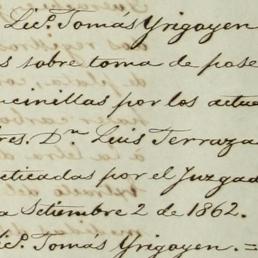 Lic.º Tomás Yrigoyen
s sobre toma de pose
cinillas por los actua
res. D.n Luis Terraza
cticadas por el Juzgad
a Setiembre 2 de 1862.
Lic.º Tomás Yrigoyen. =